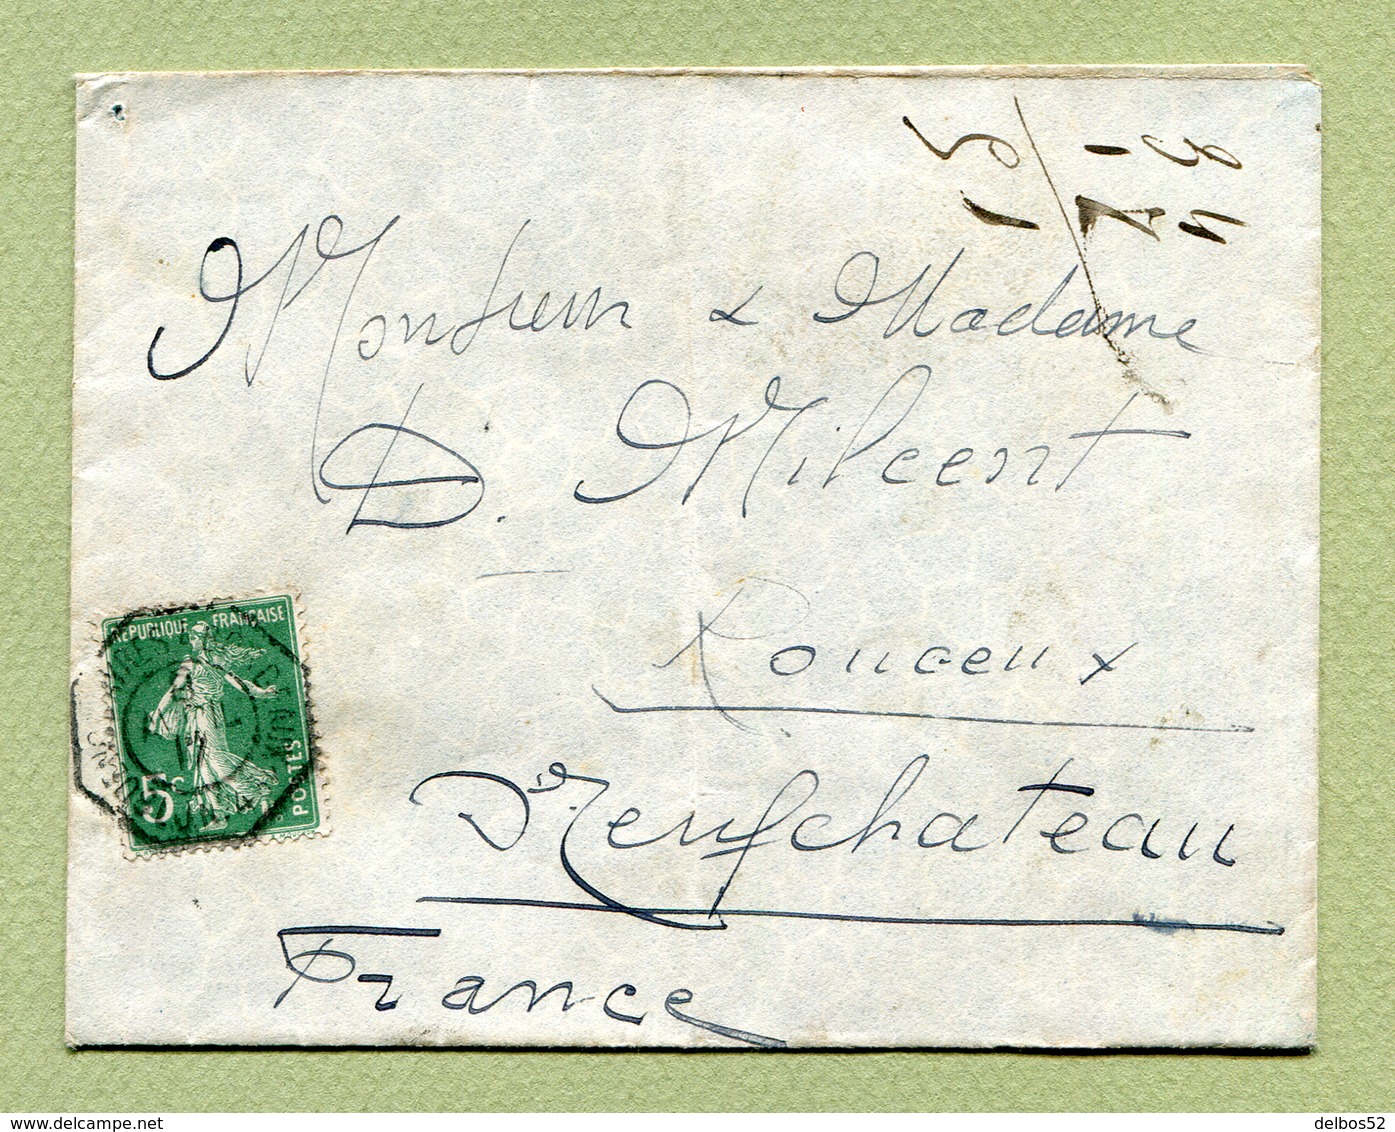 Monsieur & Madame
D. Milcent
Rouceux
Neufchateau
France
REPUBLIQUE FRANÇAISE
5c
POSTES
delcampe.net
delbos52